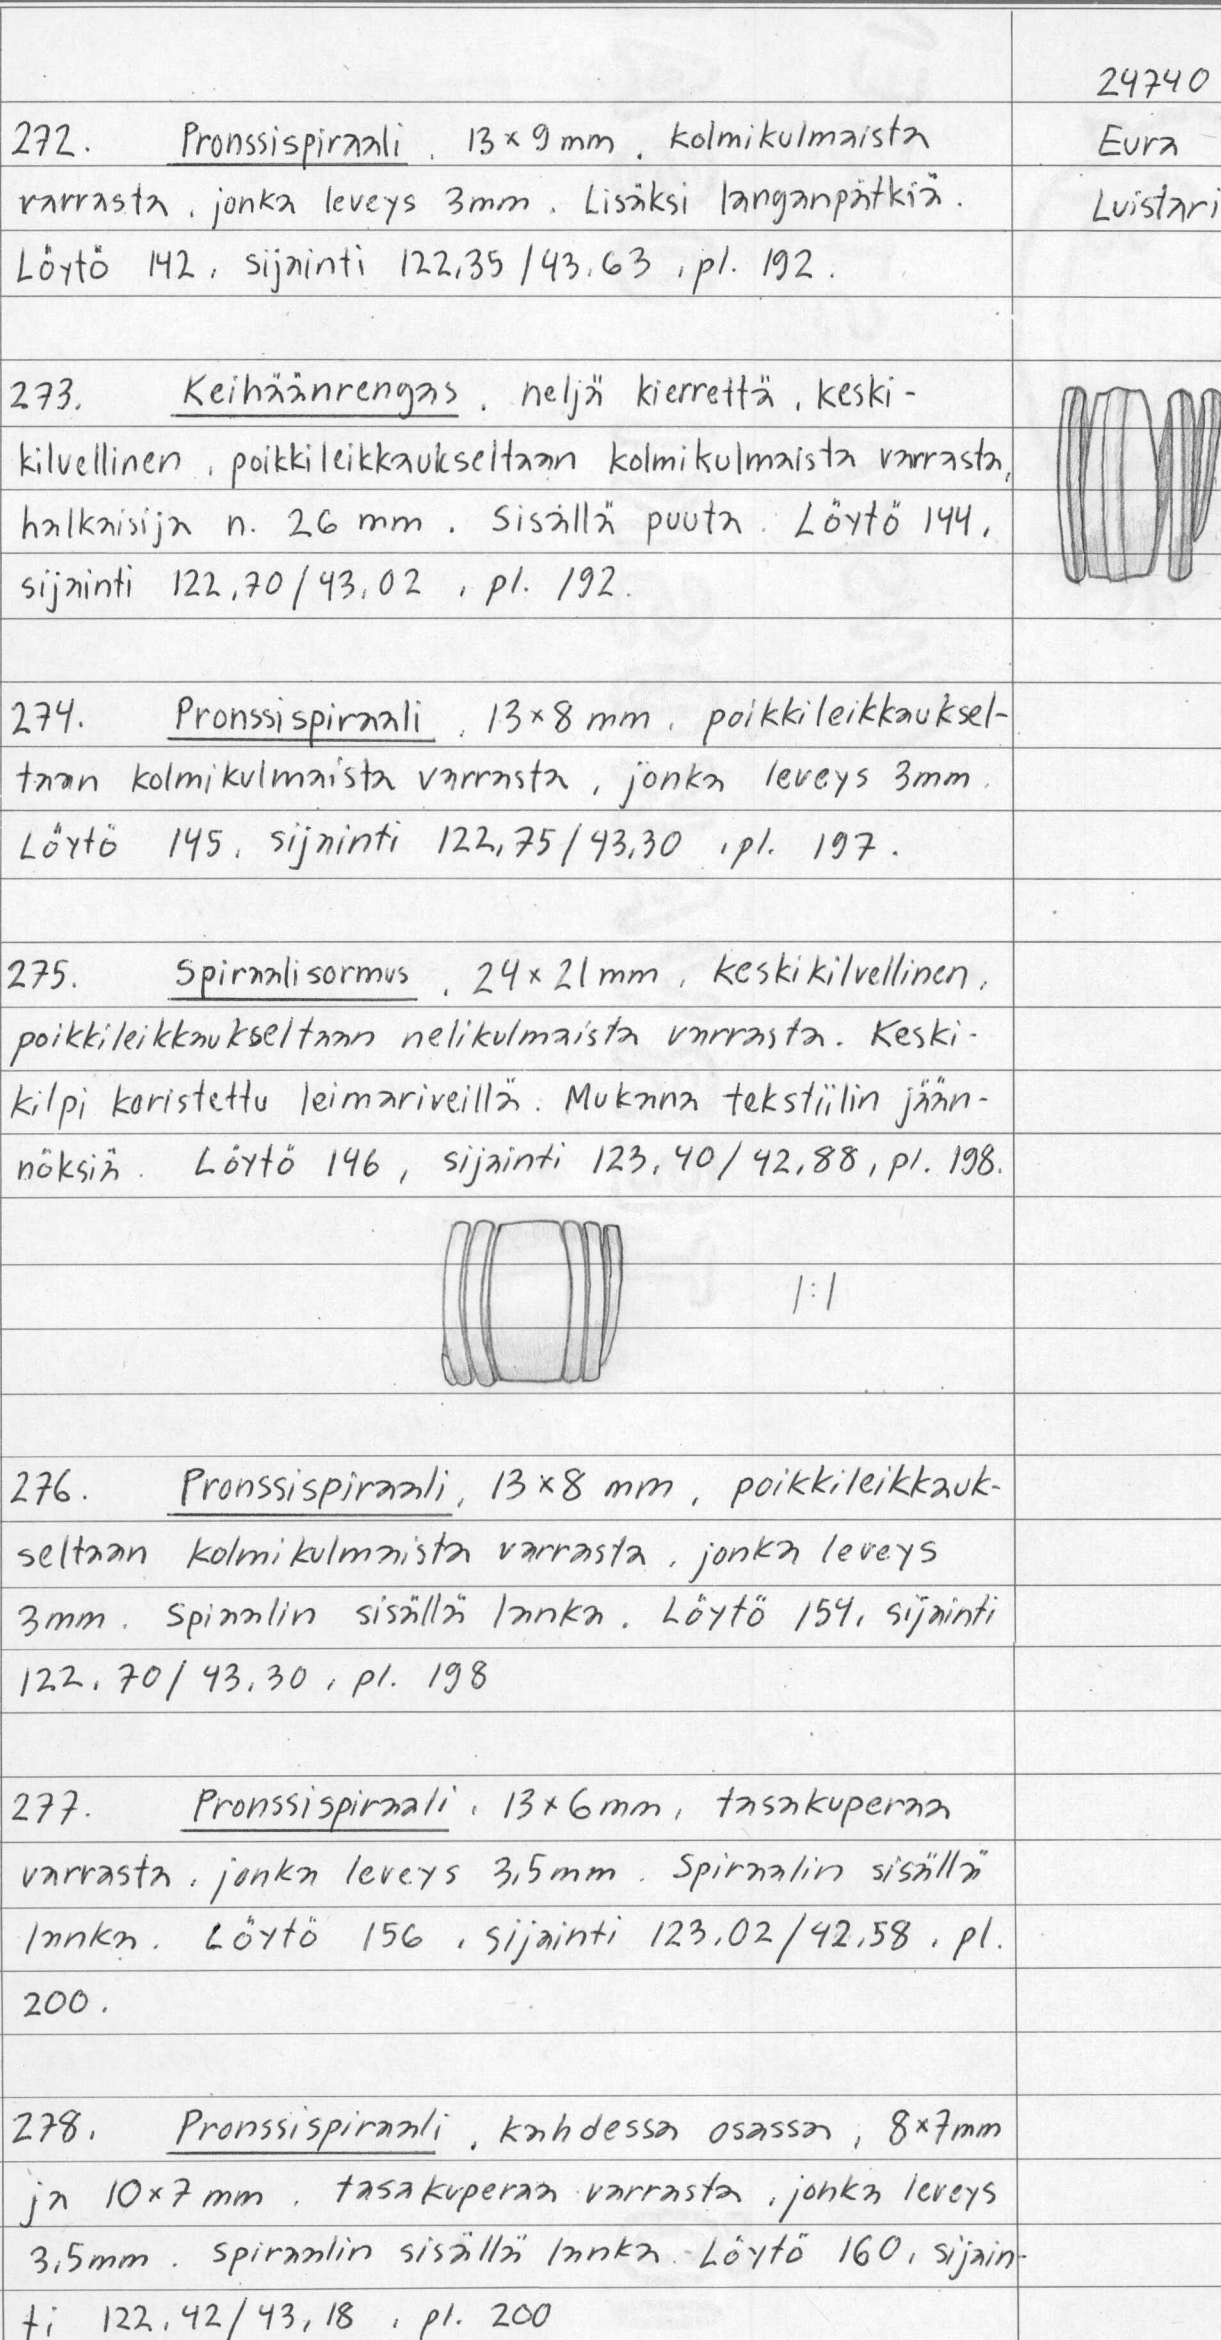 24740
Eura
Luistari
272. Pronssispiraali, 13×9 mm, kolmikulmaista
varrasta, jonka leveys 3mm. Lisäksi langanpätkiä.
Löytö 142, sijainti 122,35/43,63, pl. 192.
273. Keihäänrengas, neljä kierrettä, keski-
kilvellinen, poikkileikkaukseltaan kolmikulmaista varrasta,
halkaisija n. 26 mm. Sisällä puuta. Löytö 144,
sijainti 122,70/43,02, pl. 192.
274. Pronssispiraali, 13×8 mm, poikkileikkauksel-
taan kolmikulmaista varrasta, jonka leveys 3mm.
Löytö 145, sijainti 122,75/43,30, pl. 197.
275. Spiraalisormus, 24×21mm, keskikilvellinen,
poikkileikkaukseltaan nelikulmaista varrasta. Keski-
kilpi koristettu leimariveillä. Mukana tekstiilin jään-
nöksiä. Löytö 146, sijainti 123,40/42,88, pl. 198.
1:1
276. Pronssispiraali, 13×8 mm, poikkileikkauk-
seltaan kolmikulmaista varrasta, jonka leveys
3mm. Spiaalin sisällä lanka. Löytö 154, sijainti
122,70/43,30, pl. 198
277. Pronssispiraali, 13×6mm, tasakuperaa
varrasta, jonka leveys 3,5mm. Spiraalin sisällä
lanka. Löytö 156, sijainti 123,02/42,58, pl.
200.
278. Pronssispiraali, kahdessa osassa, 8×7mm
ja 10×7 mm, tasakuperaa varrasta, jonka leveys
3,5mm. Spiraalin sisällä lanka. Löytö 160, sijain-
ti 122,42/43,18, pl. 200